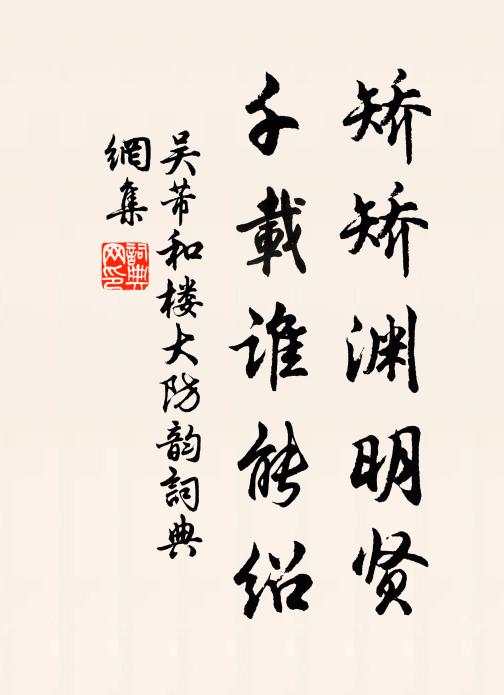 矫矫渊明贤
千載谁能绍
吴芾和楼大防韵詞典
網集
詞典
网印